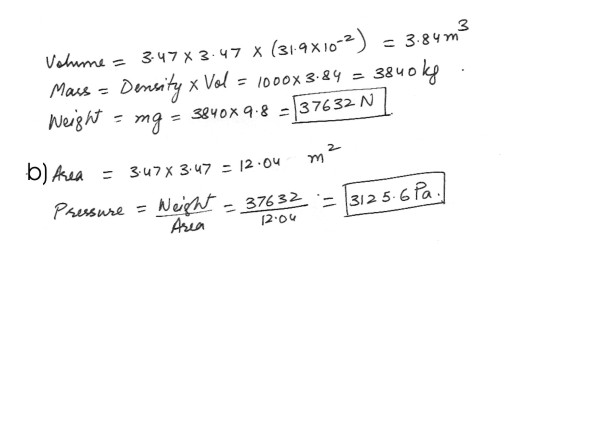 Volume = 3.47 x 3.47 x (31.9x10⁻²) = 3.84 m³
Mass = Density x Vol = 1000 x 3.84 = 3840 kg.
Weight = mg = 3840 x 9.8 = 37632 N
b) Area = 3.47 x 3.47 = 12.04 m²
Pressure = Weight/Area = 37632/12.04 = 3125.6 Pa.